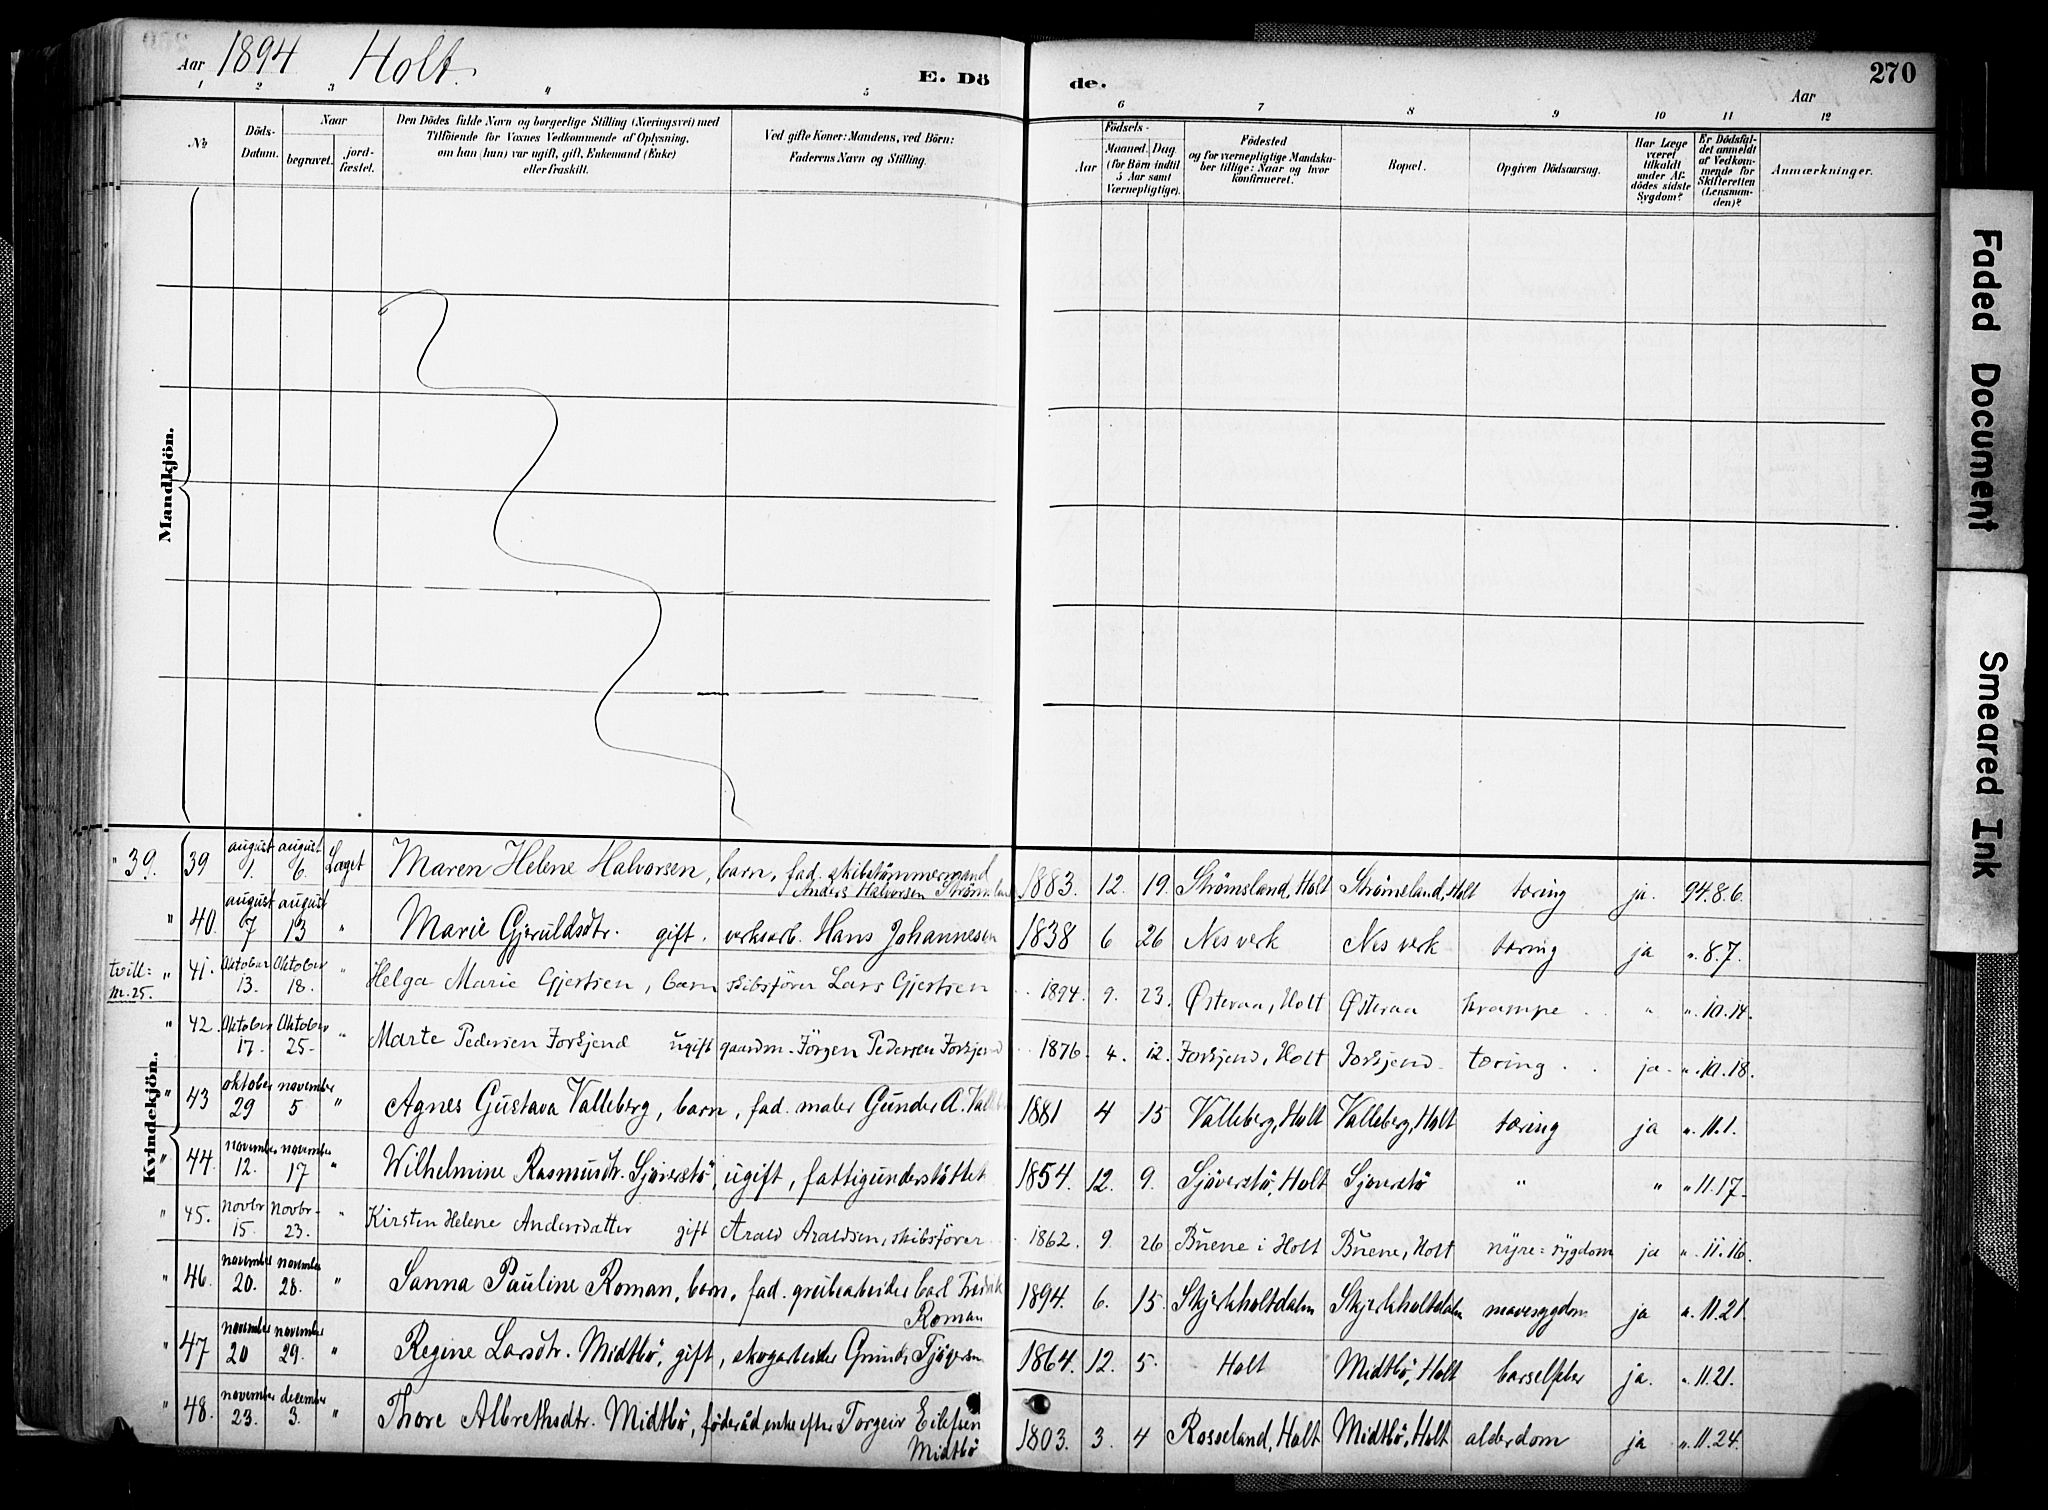 Aar 1894 Holt. E. Dö de. Aar 270
1 2 3 4 5 6 7 8 9 10 11 12
No
Döds-Datum.
Naar
begravet.
jord-fæstet.
Den Dödes fulde Navn og borgerlige Stilling (Næringsvei) med
Tilföiende for Voxnes Vedkommende af Oplysning,
om han (hun) var ugift, gift, Enkemand (Enke)
eller fraskilt.
Ved gifte Koner: Mandens, ved Börn:
Faderens Navn og Stilling.
Födsels-
Aar
Maaned. Dag
(for Börn indtil
5 Aar samt
Værnepligtige).
Födested
og for værnepligtige Mandskaber tillige: Naar og hvor
konfirmeret.
Bopæl.
Opgiven Dödsaarsag.
Har Læge
været
tilkaldt
under Afdödes sidste
Sygdom?
Er Dödsfaldet anmeldt
af Vedkommende for
Skifteretten
(Lensmanden)?
Anmærkninger.
Mandkjön.
Kvindekjön.
" 39. 39 august 1. august 6. Laget Maren Helene Halvorsen, barn, fad. skibstömmermand Anders Halvorsen 1883. 12. 19. Strömsland, Holt Strömsland, Holt tæring ja. 94.8.6.
" 40. august 7 august 13 " Marie Gjeruldsdtr. gift. verksarb. Hans Johannesen 1838 6 26 Nes verk Nes verk tæring ja ". 8.7.
tvill: m. 25. " 41. Oktober 13. Oktober 18. " Helga Marie Gjertsen, barn skibsförer Lars Gjertsen 1894. 9. 23. Østeraa, Holt Østeraa krampe " ". 10.14.
" 42. Oktober 17. Oktober 25. " Marte Pedersen Forsjend ugift gaardm. Jörgen Pedersen Forsjend 1876. 4. 12. Forsjend, Holt Forsjend tæring ja. ". 10.18.
" 43 oktober 29 november 5 " Agnes Gustava Valleberg, barn, fad. maler Gunder A. 1881 4 15 Valleberg, Holt Valleberg, Holt tæring ja ". 11.1.
" 44. november 12. november 17 " Wilhelmine Rasmusdtr. Sjöverstö, ugift, fattigunderstöttet 1854. 12. 9. Sjöverstö, Holt Sjöverstö " " " 11.17.
" 45. novbr 15. novbr. 23. " Kirsten Helene Andersdatter gift Arald Araldsen, skibsförer 1862. 9. 26 Buene i Holt Buene, Holt nyre=sygdom ja ". 11.16.
" 46. november 20. november 28. " Sanna Pauline Roman, barn, fad. grubearbeider Carl Fredrik
Roman 1894. 6. 15. Skjerkholtdalen Skjerkholtdalen mavesygdom ja ". 11.21.
" 47 november 20 november 29. " Regine Larsdtr. Midtbö, gift, skogarbeider 1864. 12. 5. Holt Midtbö, Holt barselfeber ja. ". 11.21.
" 48. november 23. december 3. " Thore Albrethsdtr. Midtbö, föderåd, enke efter Torgeir Eilefsen
Midtbö 1803. 3. 4 Rosseland, Holt Midtbö, Holt alderdom ja ". 11.24.
Faded Document
Smeared Ink